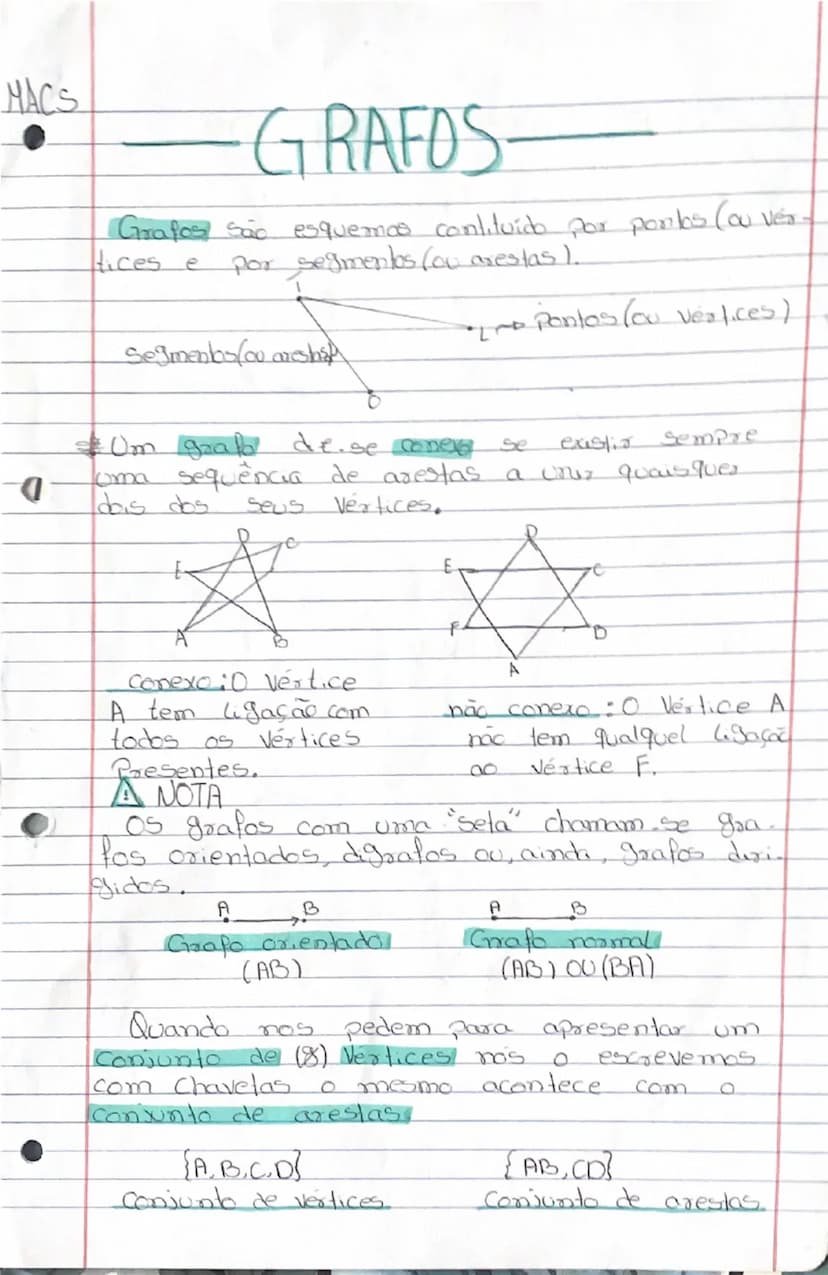 MACS
GRAFOS
Grafos são esquemas contituído por pontos (ou vér-
tices e por segmentos (ou arestas).
L → Pontos (ou vértices)
Segmentos (ou arestas)
O
* Um grafo diz-se conexo se existir sempre
uma sequência de arestas a unir quaisquer
dois dos seus vértices.
D C
E
A B
D
E C
F B
A
conexo: O vértice
A tem ligação com
todos os vértices
Presentes.
não conexo: O vértice A
não tem qualquel ligação
ao vértice F.
⚠ NOTA
OS grafos com uma "seta" chamam-se gra-
fos orientados, digrafos ou, ainda, grafos diri-
gidos.
A B
Grafo orientado
(AB)
A B
Grafo normal
(AB) OU (BA)
Quando nos pedem para apresentar um
conjunto de (8) vértices nós o escrevemos
com chavetas o mesmo acontece com o
conjunto de arestas.
{A, B, C, D}
conjunto de vértices
{AB, CD}
conjunto de arestas.